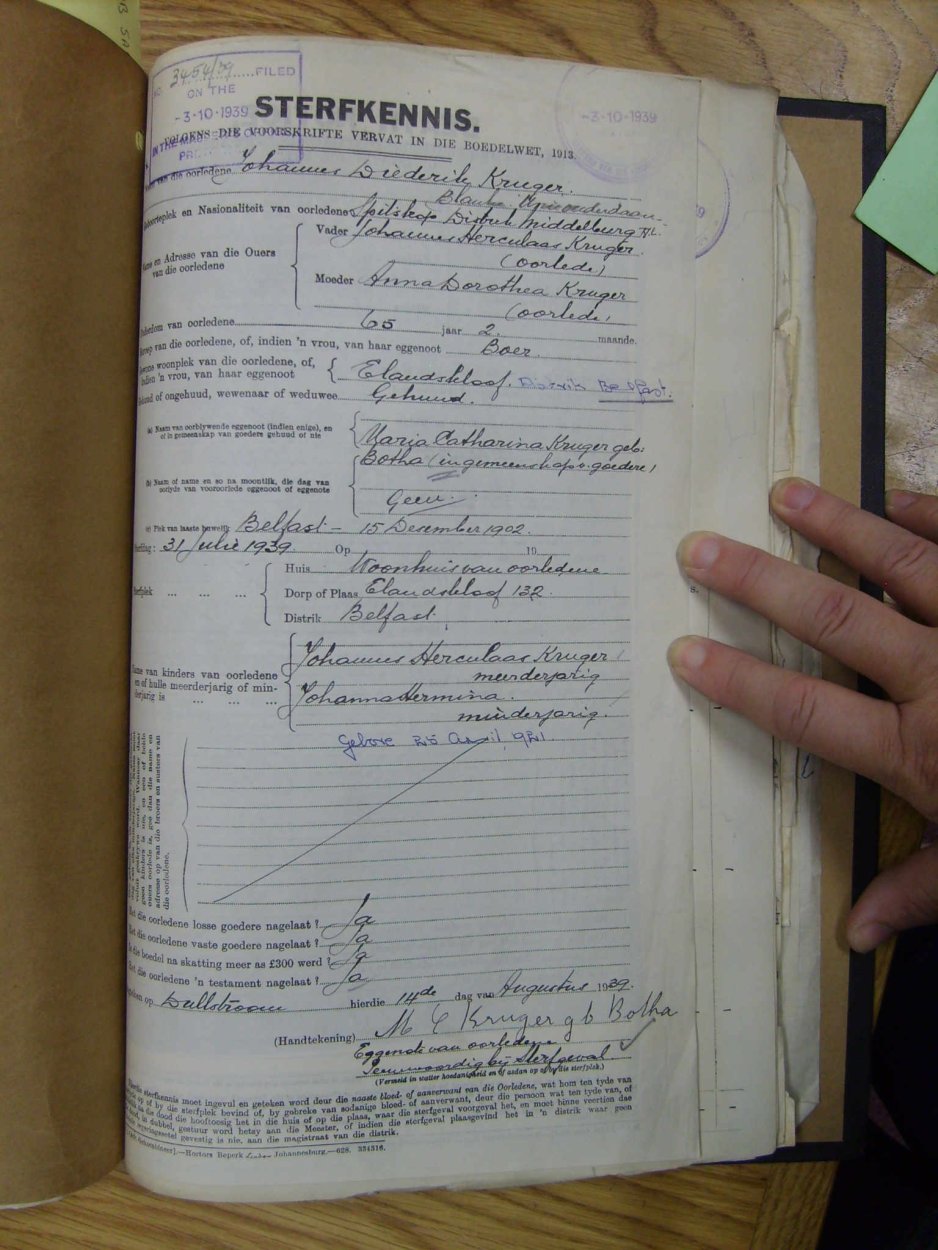 3454/39 FILED
ON THE
-3-10-1939
-3-10-1939
STERFKENNIS.
VOLGENS DIE VOORSKRIFTE VERVAT IN DIE BOEDELWET, 1913.
van die oorledene Johannes Diederik Kruger.
Geboorteplek en Nasionaliteit van oorledene Spitskop Distrik Middelburg
Name en Adresse van die Ouers van die oorledene
Vader Johannes Herculaas Kruger
(oorlede)
Moeder Anna Dorothea Kruger
(oorlede)
Ouderdom van oorledene 65 jaar 2 maande.
Beroep van die oorledene, of, indien 'n vrou, van haar eggenoot Boer.
Gewone woonplek van die oorledene, of, indien 'n vrou, van haar eggenoot
Elandskloof. Distrik Belfast.
Gehuud of ongehuud, wewenaar of weduwee Gehuud.
(a) Naam van oorblywende eggenoot (indien enige), en of in gemeenskap van goedere gehuud of nie
Maria Catharina Kruger geb:
Botha (in gemeenskap v. goedere)
(b) Naam of name en so na moontlik, die dag van oorlyde van vooroorlede eggenoot of eggenote
Geen.
(c) Plek van laaste huwelik Belfast - 15 Desember 1902.
31 Julie 1939. Op 19
Sterfplek ... ... ...
Huis Woonhuis van oorledene
Dorp of Plaas Elandskloof 132
Distrik Belfast.
Name van kinders van oorledene en of hulle meerderjarig of minderjarig is ... ... ...
Johannes Herculaas Kruger
meerderjarig
Johanna Hermina.
minderjarig.
Gebore 25 April 1921.
Het die oorledene losse goedere nagelaat? Ja
Het die oorledene vaste goedere nagelaat? Ja
Is die boedel na skatting meer as £300 werd? Ja
Het die oorledene 'n testament nagelaat? Ja
op Dullstroom hierdie 14de dag van Augustus 1939.
(Handtekening) M C Kruger gb Botha
Eggenote van oorledene
Teenwoordig by sterfgeval
(Vermeld in watter hoedanigheid en of asdan op of by die sterfplek.)
sterfkennis moet ingevul en geteken word deur die naaste bloed- of aanverwant van die Oorledene, wat hom ten tyde van
op of by die sterfplek bevind of, by gebreke van sodanige bloed- of aanverwant, deur die persoon wat ten tyde van, of
na die dood die hooftoesig het in die huis of op die plaas, waar die sterfgeval voorgeval het, en moet binne veertien dae
in dubbel, gestuur word hetsy aan die Meester, of indien die sterfgeval plaasgevind het in 'n distrik waar geen
gevestig is nie, aan die magistraat van die distrik.
Hortors Beperk Johannesburg.—628. 334516.